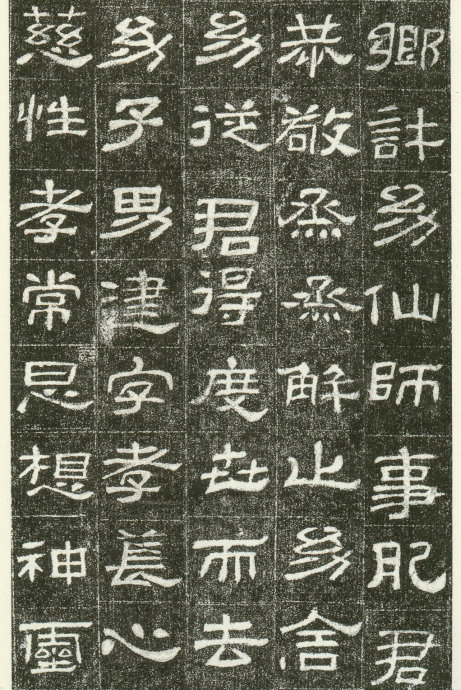 鄉許幼仙師事肥君
恭敬烝烝解止幼舍
幼從君得度世而去
幼子男建字孝萇心
慈性孝常思想神靈